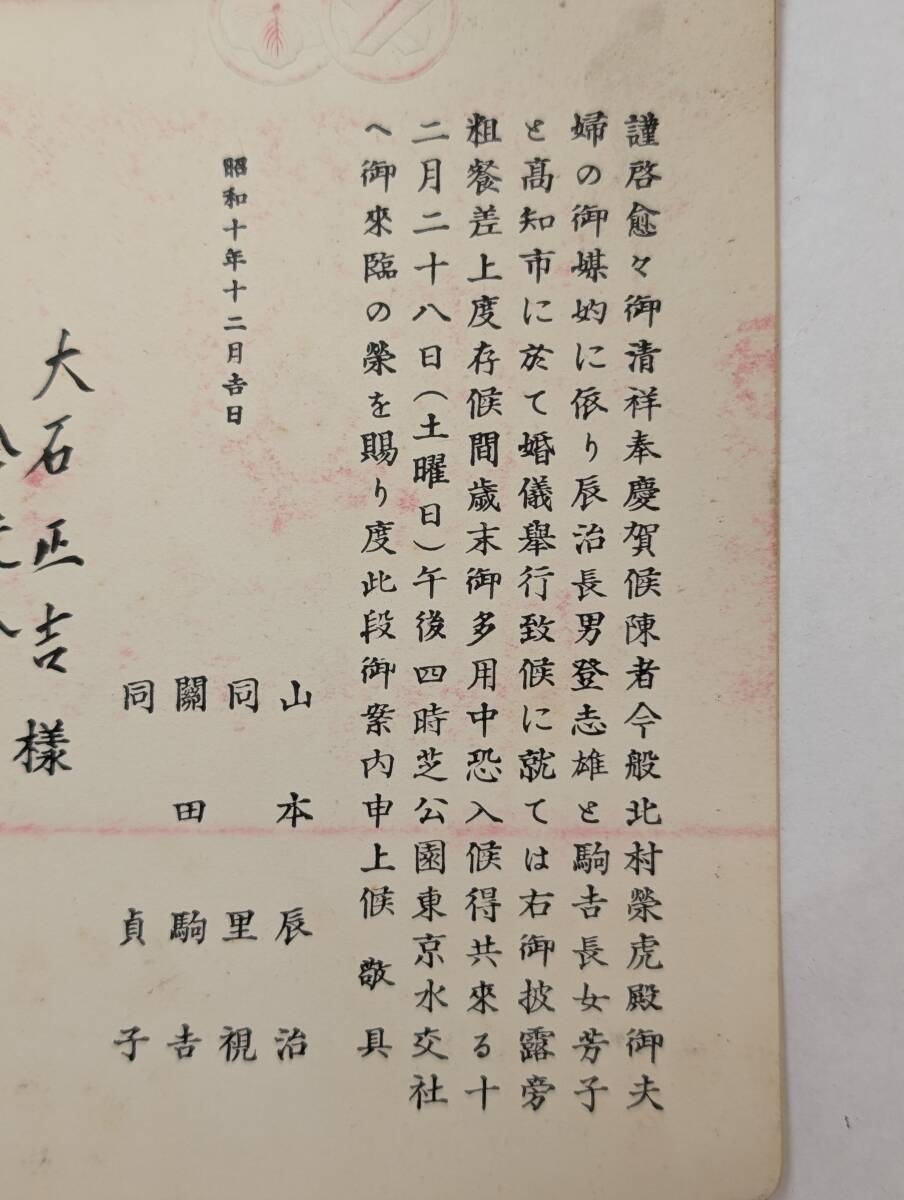 謹啓愈々御清祥奉慶賀候陳者今般北村榮虎殿御夫
婦の御媒妁に依り辰治長男登志雄と駒𠮷長女芳子
と髙知市に於て婚儀舉行致候に就ては右御披露旁
粗餐差上度存候間歳末御多用中恐入候得共來る十
二月二十八日(土曜日)午後四時芝公園東京水交社
へ御來臨の榮を賜り度此段御案内申上候 敬具
昭和十年十二月𠮷日
山本辰治
同里視
關田駒𠮷
同貞子
大石正吉様